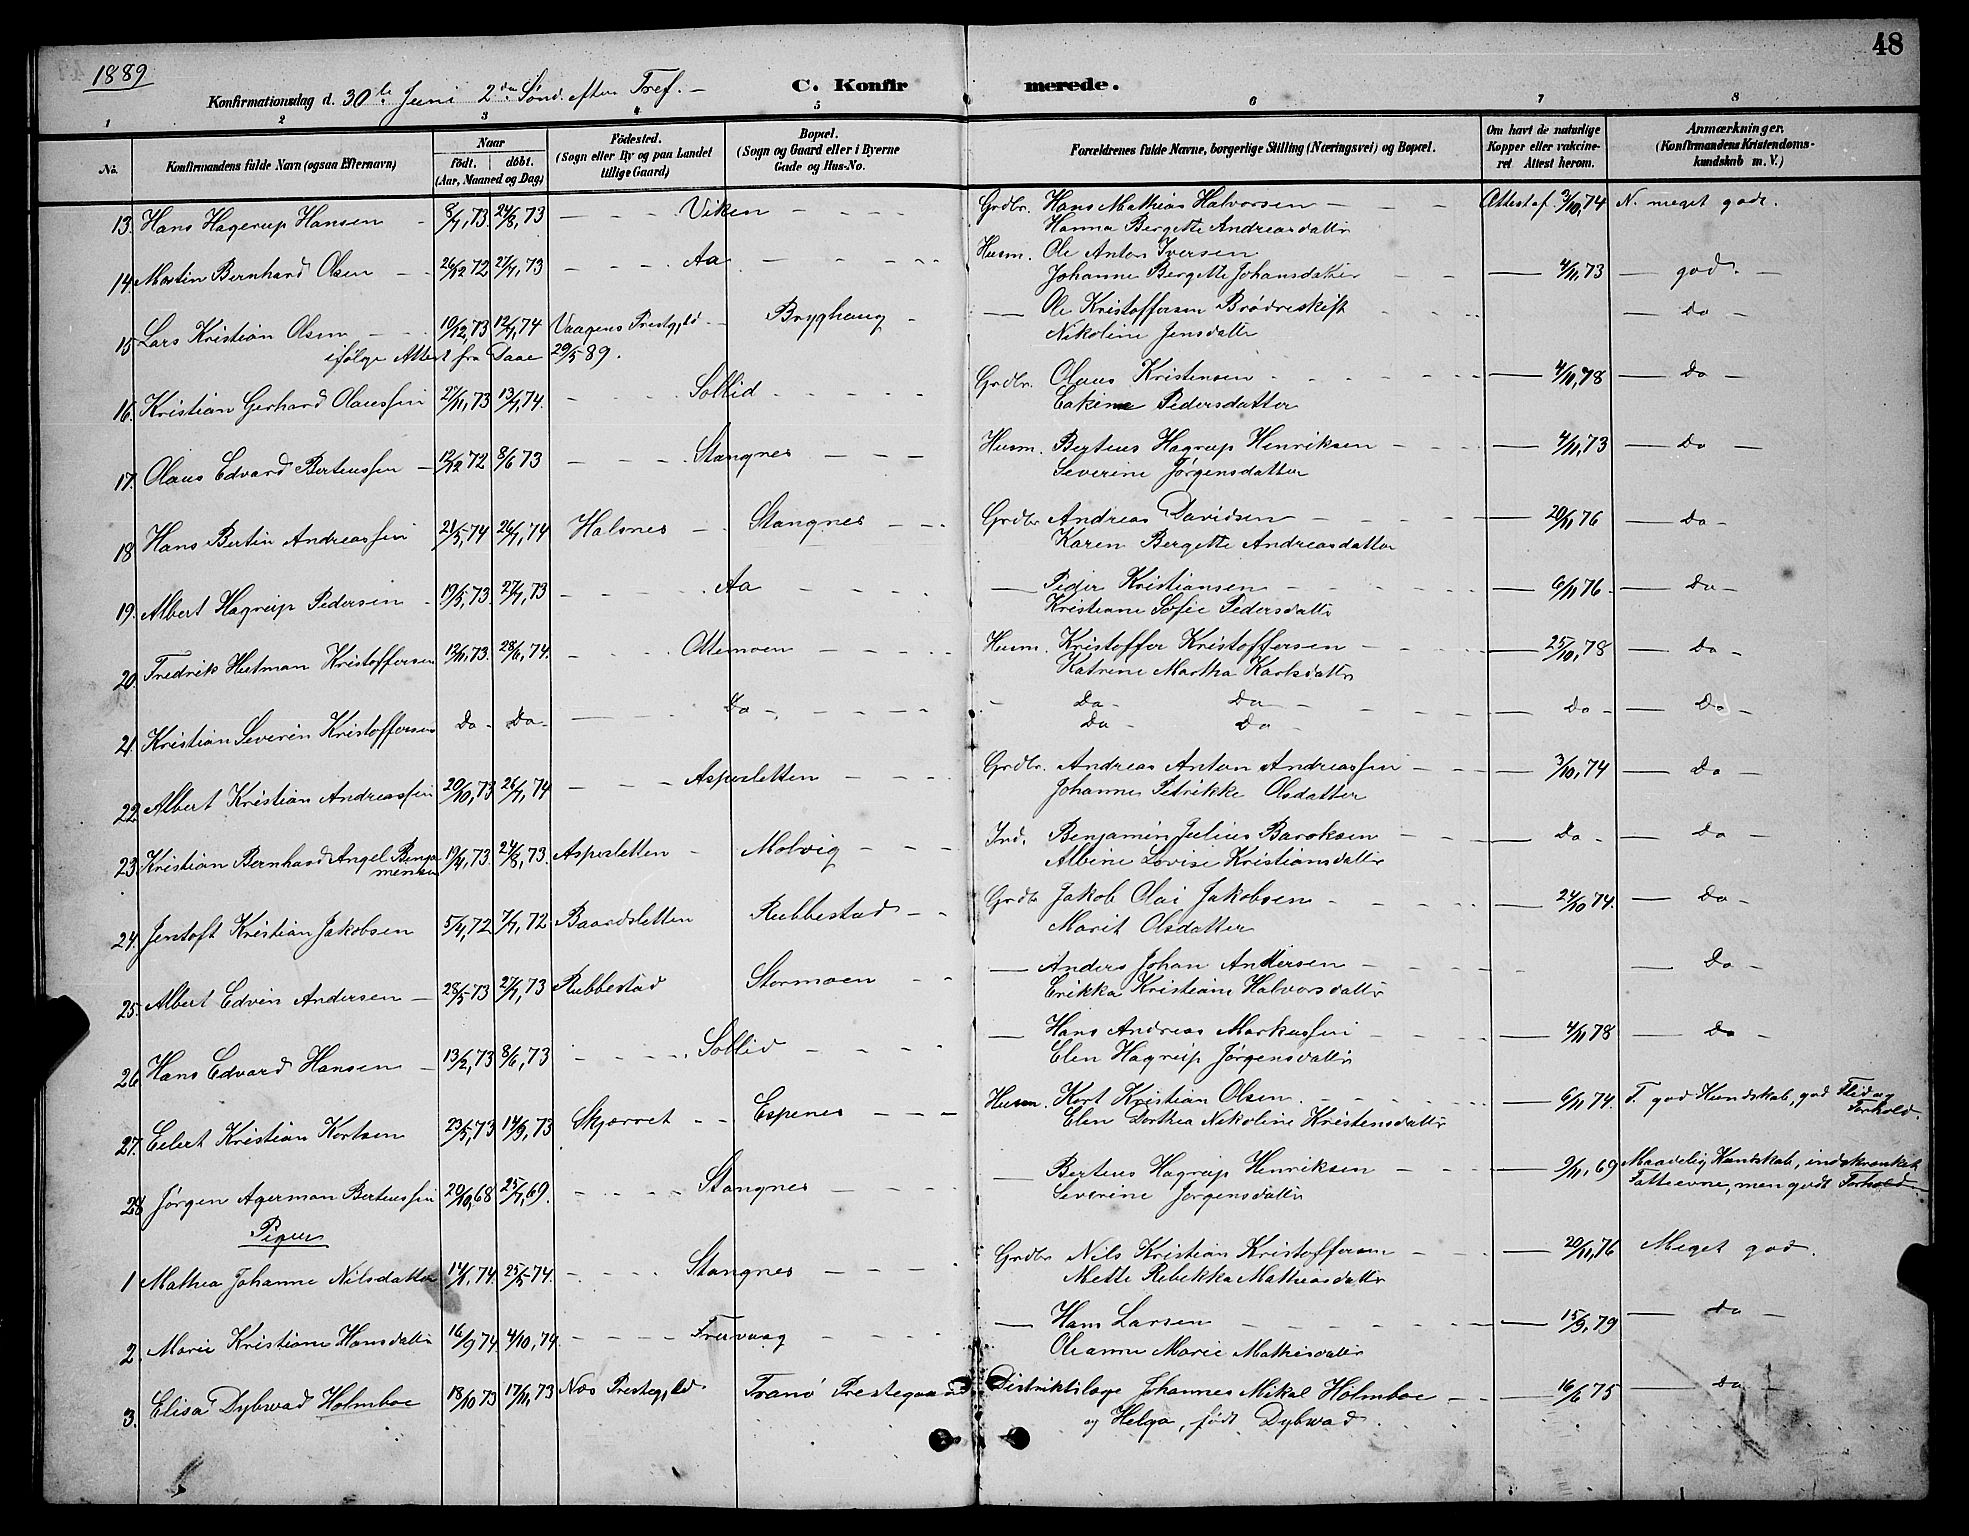 48
1889
Konfirmationsdag d. 30te Juni 2den Sønd. efter Tref. –
C. Konfirmerede.
1 2 3 4 5 6 7 8
No. Konfirmandens fulde Navn (ogsaa Efternavn) Naar født. døbt. (Aar, Maaned og Dag) Fødested. (Sogn eller By og paa Landet tillige Gaard) Bopæl. (Sogn og Gaard eller i Byerne Gade og Hus-No. Forældrenes fulde Navne, borgerlige Stilling (Næringsvei) og Bopæl. Om havt de naturlige Kopper eller vaccineret. Attest herom. Anmærkninger. (Konfirmandens Kristendomskundskab m. V.)
13. Hans Hagerup Hansen 8/7,73 24/8,73 Viken Grdbr. Hans Mathias Halvorsen Attest af 3/10,74 N. meget godt.
Hanna Bergette Andreasdatter
14. Martin Bernhard Olsen 26/12 72 27/7,73 Aa Husm. Ole Anton Iversen 4/11,73 god
Johanne Bergette Johansdatter
15. Lars Kristian Olsen 19/12,73 12/7,74 Vaagens Prestgjld Bryghaug Ole Kristoffersen Brødreskift Do
ifølge Attest fra Daae 29/5 89. Nikoline Jensdatter
16. Kristian Gerhard Olaussen 27/11,73 13/7,74. Sollid Grdbr. Olaus Kristensen 4/11,78 Do
Eakine Pedersdatter
17. Olaus Edvard Berteussen 12/12 72 8/6 73 Stangnes Husm. Berteus Hagrup Henriksen 4/11,73 Do
Severine Jørgensdatter
18. Hans Bertin Andreassen 21/5,74 26/7,74 Halsnes Stangnes Grdbr Andreas Davidsen 20/11 76 Do
Karen Bergette Andreasdatter
19. Albert Hagrup Pedersen 19/5,73. 27/7,73 Aa Peder Kristiansen 6/11 76 Do
Kristiane Sofie Pedersdatter
20. Fredrik Hutman Kristoffersen 12/11,73. 28/6,74. Ottemoen Husm. Kristoffer Kristoffersen 25/10,78 Do
Katrine Martha Karlsdatter
21. Kristian Severin Kristoffersen Do Do Do Do Do Do Do
Do Do
22. Albert Kristian Andreassen 20/10,73 26/7,74 Aspesletten Grdbr. Andreas Anton Andreassen 3/10,74 Do
Johanne Petrikke Olsdatter
23. Kristian Bernhard Angel Benjamensen 19/4,73 24/8,73. Aspesletten Molvig Ind. Benjamin Julius Baroksen Do Do
Albine Lovise Kristiansdatter
24. Jentoft Kristian Jakobsen 5/4,72 7/7,72 Baardsletten Rubbestad Grdbr Jakob Olai Jakobsen 24/10 74. Do
Marit Olsdatter
25. Albert Edvin Andersen 28/5 73 27/7,73 Rubbestad Stormoen Anders Johan Andersen Do
Erikka Kristiane Halvorsdatter
26. Hans Edvard Hansen 13/2,73 8/6,73 Sollid Hans Andreas Markussen 4/11 78 Do
Elen Hagrup Jørgensdatter
27. Eilert Kristian Kortsen 23/5,73 14/9,73 Skjærret Espenes Husm. Kort Kristian Olsen 6/11 74. T. god Kundskab, god Flid og Forhold.
Elen Dorthea Nikoline Kristensdatter
28. Jørgen Agerman Berteussen 20/10,68 25/7,69. Stangnes Berteus Hagrup Henriksen 9/11,69 Maadelig Kundskab, indskrænket
Severine Jørgensdatter Fatteevne, men godt Forhold
Piger
1 Mathea Johanne Nilsdatter 14/1,74. 25/5 74. Stangnes Grdbr Nils Kristian Kristoffersen 20/11,76 Meget god.
Mette Rebekka Mathiasdatter
2. Marie Kristiane Hansdatter 16/9 74 4/10,74. Trervaag Hans Larsen 15/9,79 Do
Oleanne Marie Mathisdatter
3. Elisa Dybwad Holmboe 18/10 73 17/11,73 Næs Prestegjld Tranø Prestegaard Distriktslæge Johannes Mikal Holmboe 16/6 75 Do
og Helga, født Dybwad